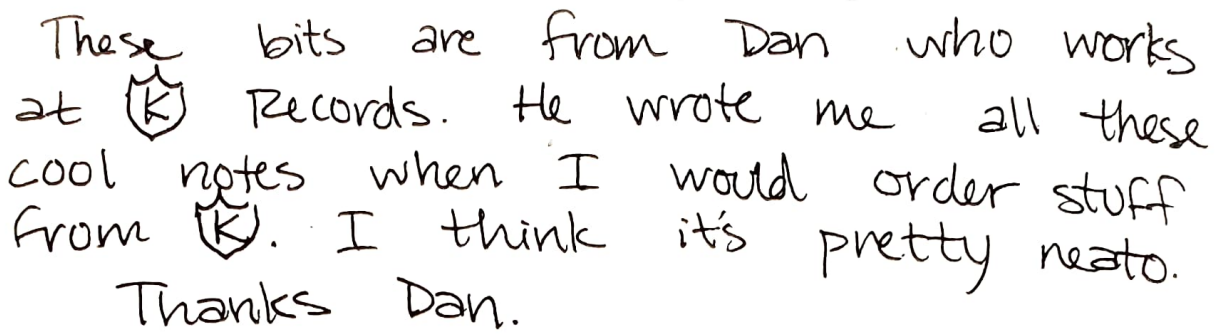 These bits are from Dan who works
at K Records. He wrote me all these
cool notes when I would order stuff
from K. I think it's pretty neato.
Thanks Dan.